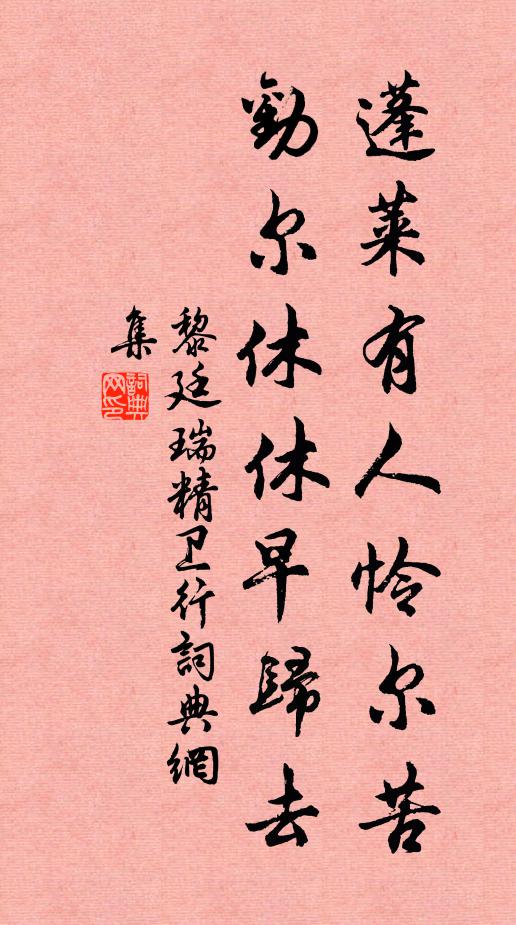 蓬莱有人怜尔苦
勸尔休休早歸去
黎廷瑞精卫行詞典網
集
詞典网印